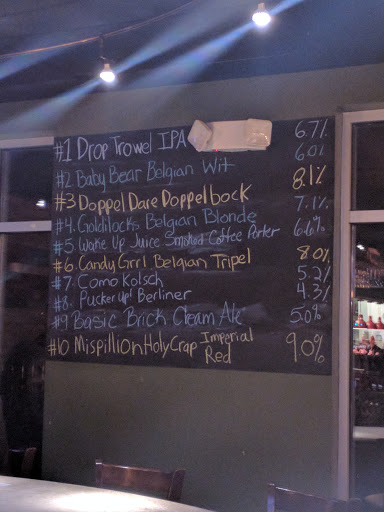 #1 Drop Trowel IPA 6.7%
#2 Baby Bear Belgian Wit 6.0%
#3 Doppel Dare Doppelbock 8.1%
#4. Goldilocks Belgian Blonde 7.1%
#5 Wake Up Juice Smoked Coffee Porter 6.6%
#6. Candy Grrl Belgian Tripel 8.0%
#7. Como Kolsch 5.2%
#8. Pucker up! Berliner 4.3%
#9 Basic Brick Cream Ale 5.0%
#10 Mispillion Holy Crap Imperial Red 9.0%